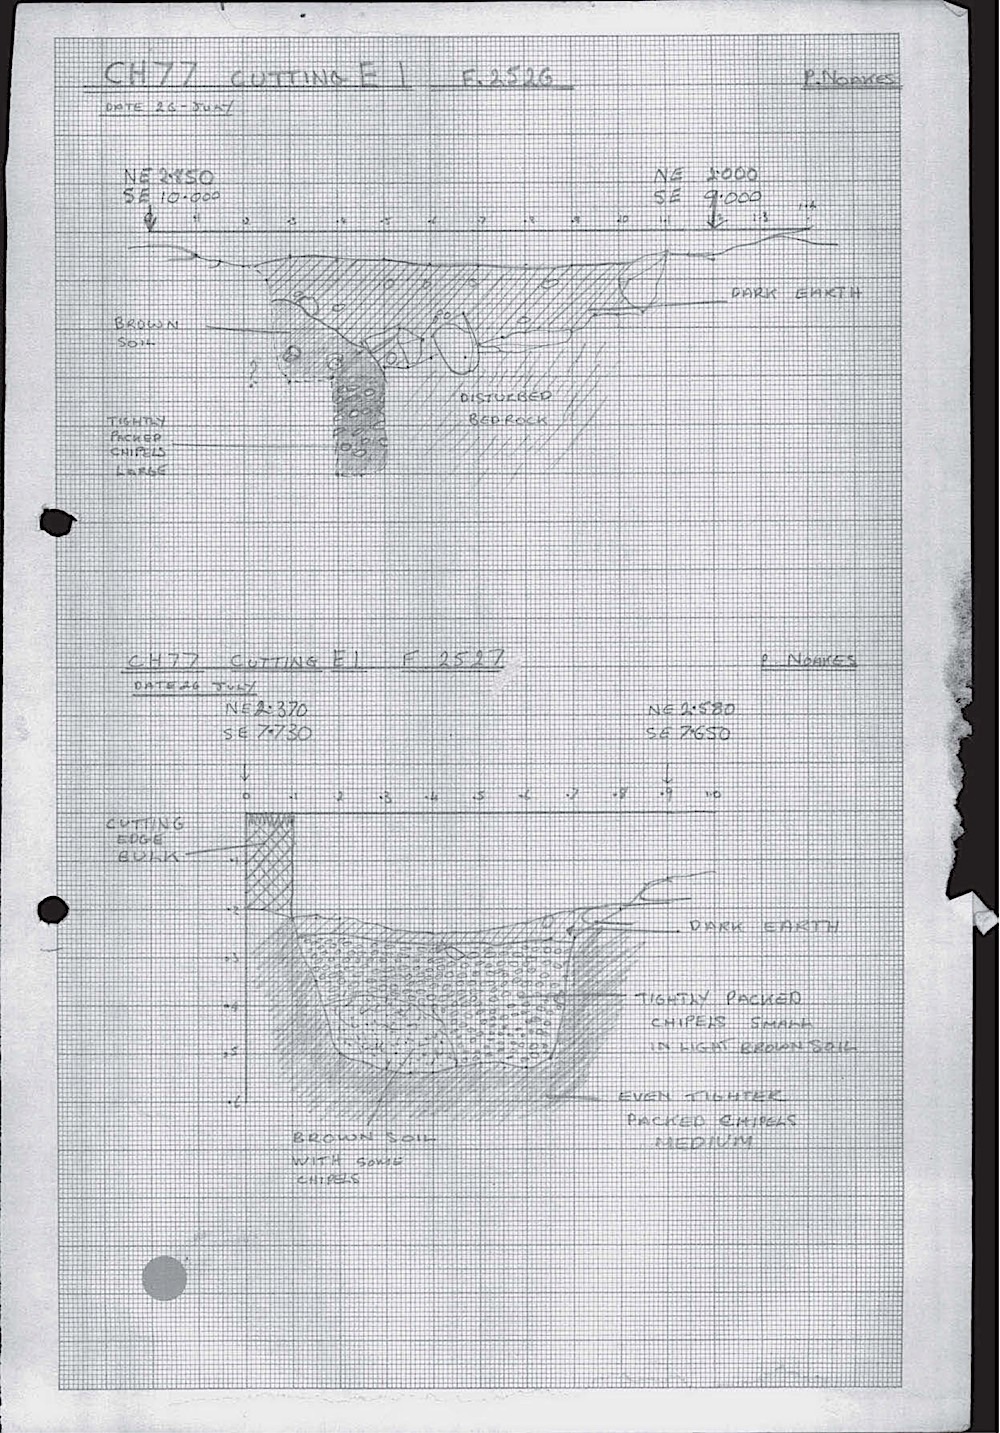 CH77 CUTTING E1 F.2526 P. NOAKES
DATE 26-JULY
NE 2.850 NE 2.000
SE 10.000 SE 9.000
.1 .2 .3 .4 .5 .6 .7 .8 .9 1.0 1.1 1.2 1.3 1.4
DARK EARTH
BROWN
SOIL
?
DISTURBED
BEDROCK
TIGHTLY
PACKED
CHIPELS
LARGE
CH77 CUTTING E1 F 2527 P NOAKES
DATE 26 JULY
NE 2.370 NE 2.580
SE 7.730 SE 7.650
0 .1 .2 .3 .4 .5 .6 .7 .8 .9 1.0
CUTTING
EDGE
BULK
.1
.2
DARK EARTH
.3
TIGHTLY PACKED
.4
CHIPELS SMALL
IN LIGHT BROWN SOIL
.5
EVEN TIGHTER
.6
PACKED CHIPELS
MEDIUM
BROWN SOIL
WITH SOME
CHIPELS